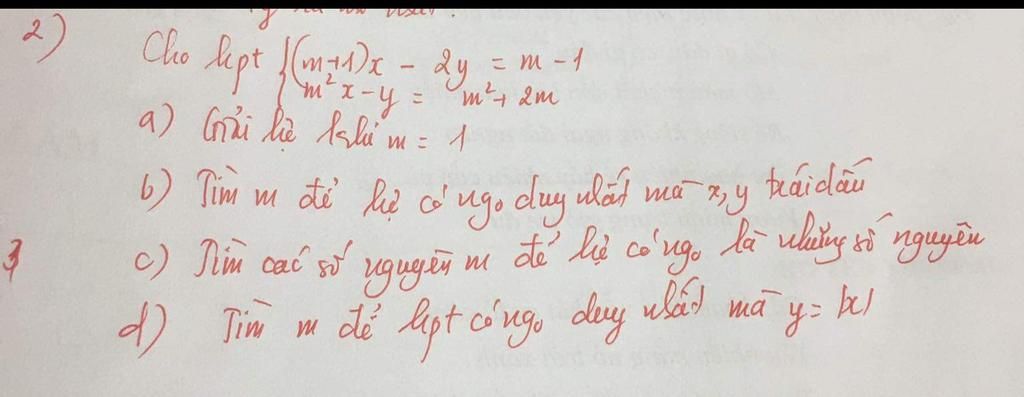 2)
Cho hpt { (m+1)x - 2y = m - 1
m²x - y = m² + 2m
a) Giải hệ khi m = 1
b) Tìm m để hệ có ngo duy nhất mà x, y trái dấu
3 c) Tìm các số nguyên m để hệ có ngo là những số nguyên
d) Tìm m để hpt có ngo duy nhất mà y = |x|